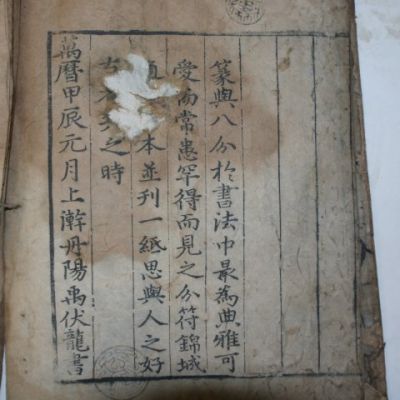 篆與八分於書法中最為典雅可
愛而常患罕得而見之分符錦城
本並刊一紙思與人之好
古 之時
萬曆甲辰元月上澣丹陽禹伏龍書